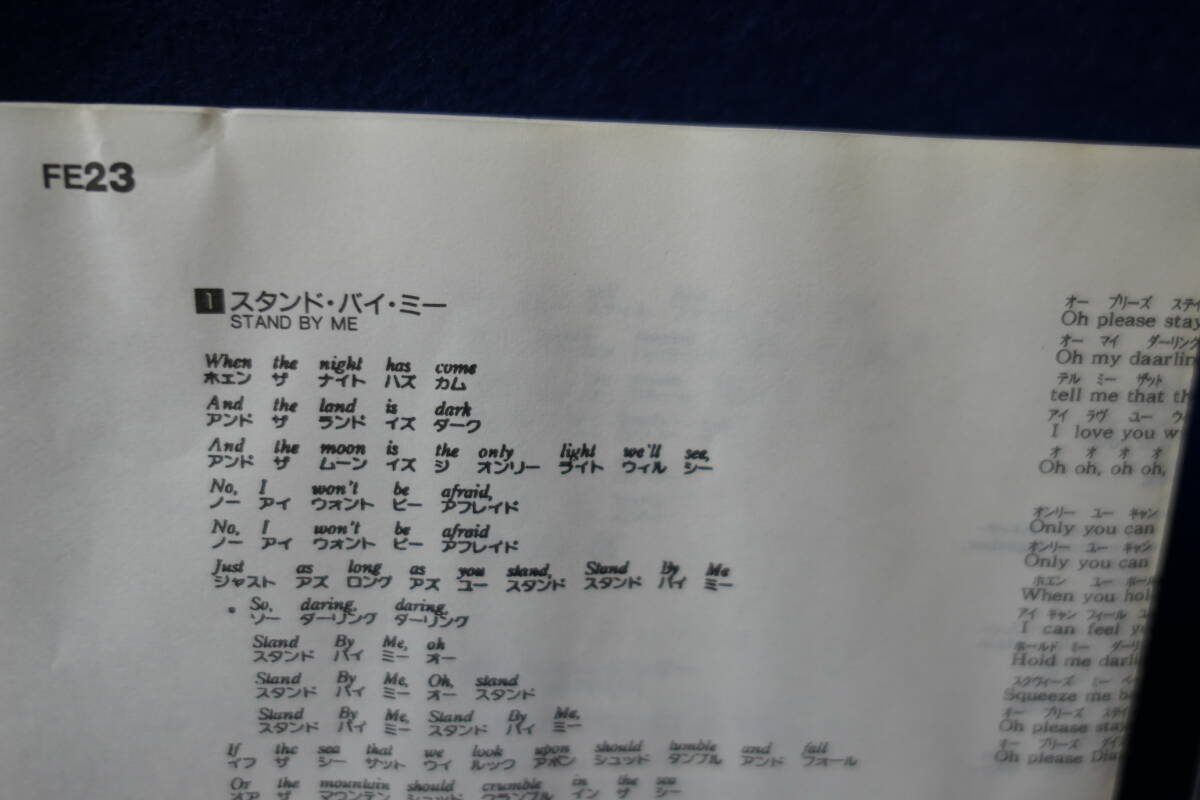 FE23
1 スタンド・バイ・ミー
STAND BY ME
When the night has come
ホエン ザ ナイト ハズ カム
And the land is dark
アンド ザ ランド イズ ダーク
And the moon is the only light we'll see,
アンド ザ ムーン イズ ジ オンリー ライト ウィル シー
No, I won't be afraid,
ノー アイ ウォント ビー アフレイド
No, I won't be afraid
ノー アイ ウォント ビー アフレイド
Just as long as you stand, Stand By Me
ジャスト アズ ロング アズ ユー スタンド スタンド バイ ミー
* So, daring, daring,
ソー ダーリング ダーリング
Stand By Me, oh
スタンド バイ ミー オー
Stand By Me, Oh, stand
スタンド バイ ミー オー スタンド
Stand By Me, Stand By Me,
スタンド バイ ミー スタンド バイ ミー
If the sea that we look upon should tumble and fall
イフ ザ シー ザット ウィ ルック アポン シュッド タンブル アンド フォール
Or the mountain should crumble in the sea
オア ザ マウンテン シュッド クランブル イン ザ シー
オー プリーズ ステイ
Oh please stay
オー マイ ダーリング
Oh my daarlin
テル ミー ザット
tell me that th
アイ ラヴ ユー ウ
I love you w
オ オ オ オ
Oh oh, oh oh,
オンリー ユー キャン
Only you can
オンリー ユー キャン
Only you can
ホエン ユー ホール
When you hol
アイ キャン フィール ユ
I can feel y
ホールド ミー ダーリ
Hold me darli
スクウィーズ ミー
Squeeze me
オー プリーズ ステイ
Oh please stay
オー プリーズ ダイ
Oh please Dia